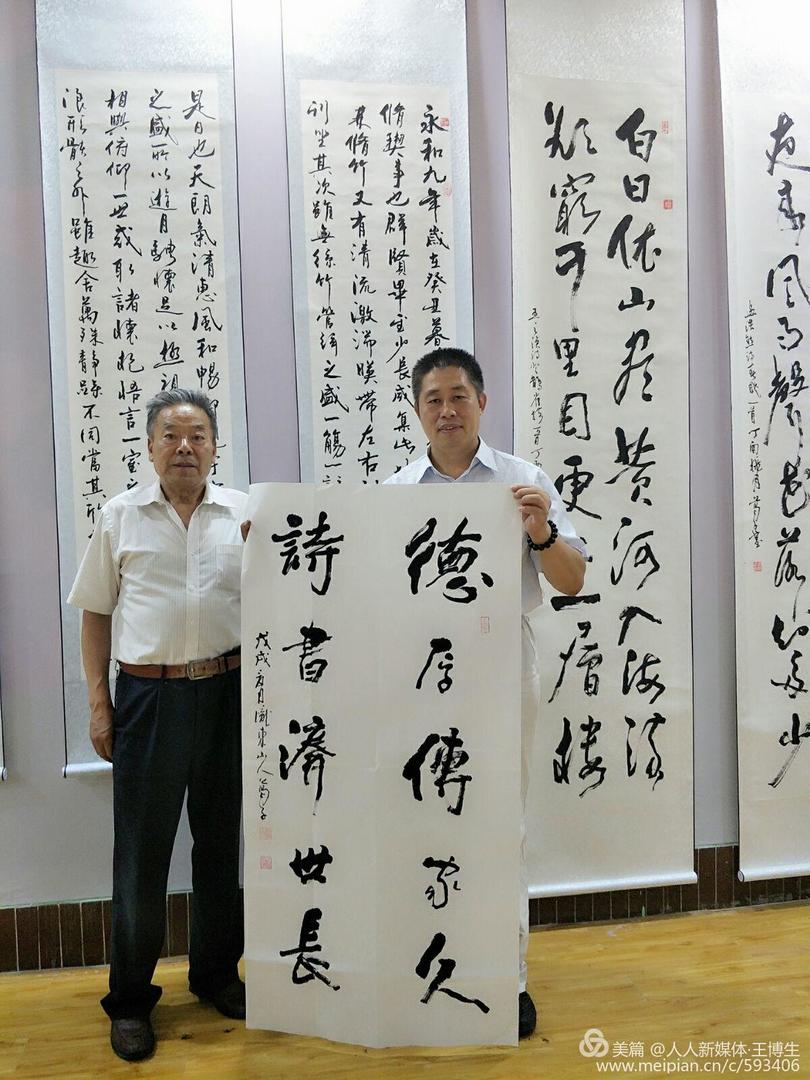 德厚傳家久
詩書濟世長
戊戌
東山人
白日依山盡黄河入海流
欲窮千里目更
一層樓
夜来風雨聲花落知多少
永和九年歲在癸丑暮
脩禊事也群賢畢至少長咸集此
林脩竹又有清流激湍暎帶左右
列坐其次雖無絲竹管絃之盛一觴一詠
是日也天朗氣清惠風和暢仰
之盛所以遊目騁懷足以極視
相與俯仰一世或取諸懷抱悟言一室之
浪形骸之外雖趣舍萬殊静躁不同當其所
美篇 @人人新媒体·王博生
www.meipian.cn/c/593406